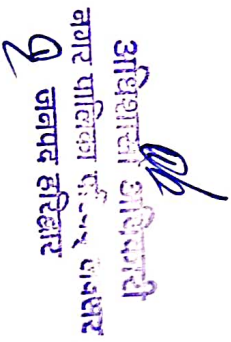 अधिशासी अधिकारी
नगर पालिका परिषद्
जनपद हरिद्वार